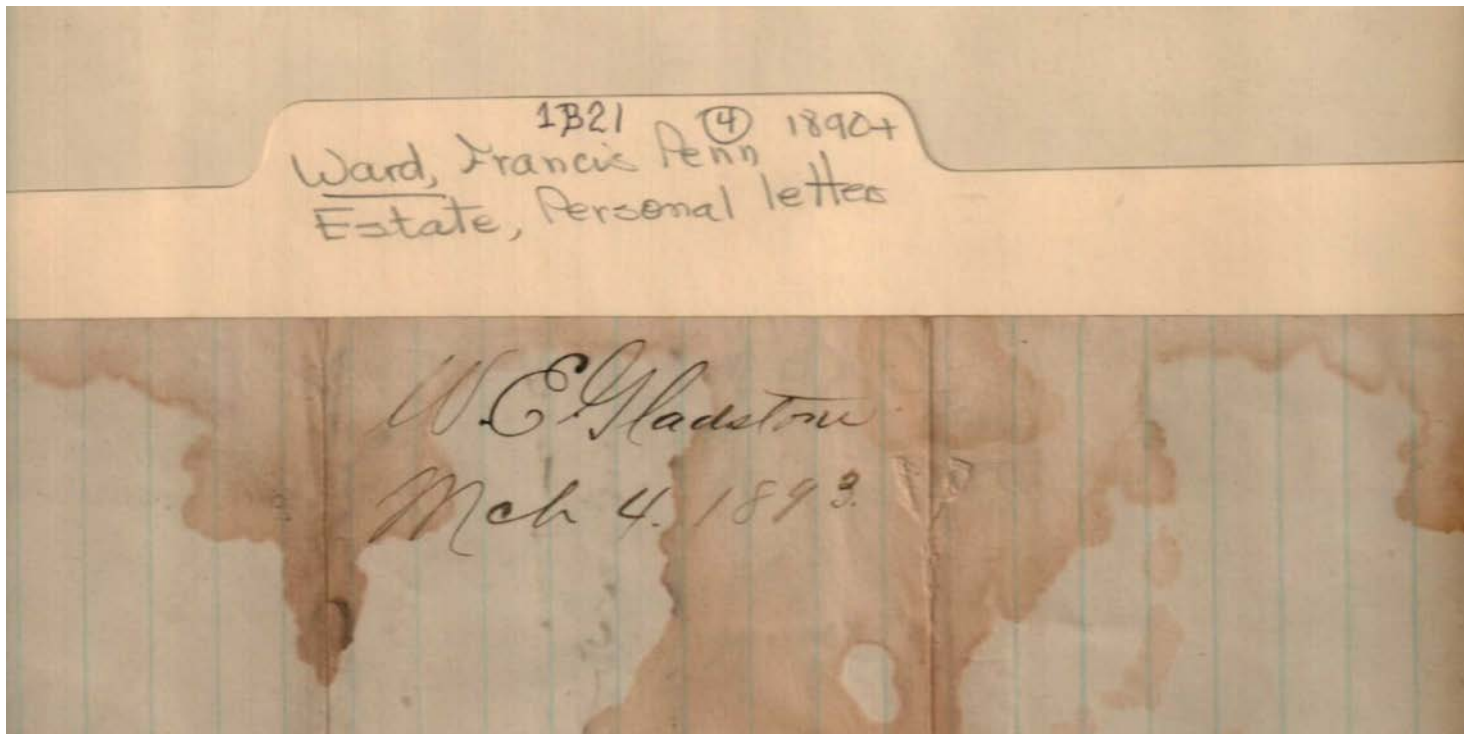 1B21 4 1890+
Ward, Francis Penn
Estate, Personal letter
W. E. Gladstone
Mch 4. 1893.